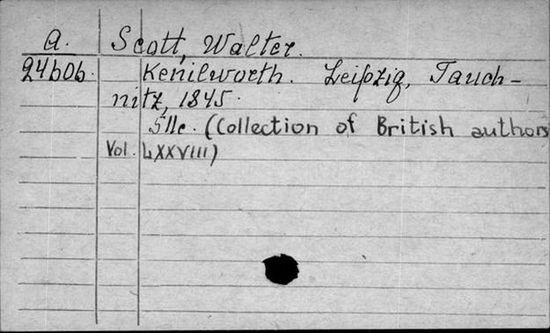 a. Scott, Walter.
24606. Kenilworth. Leipzig, Tauch-
nitz, 1845.
511c. (Collection of British authors
Vol. LXXVIII)